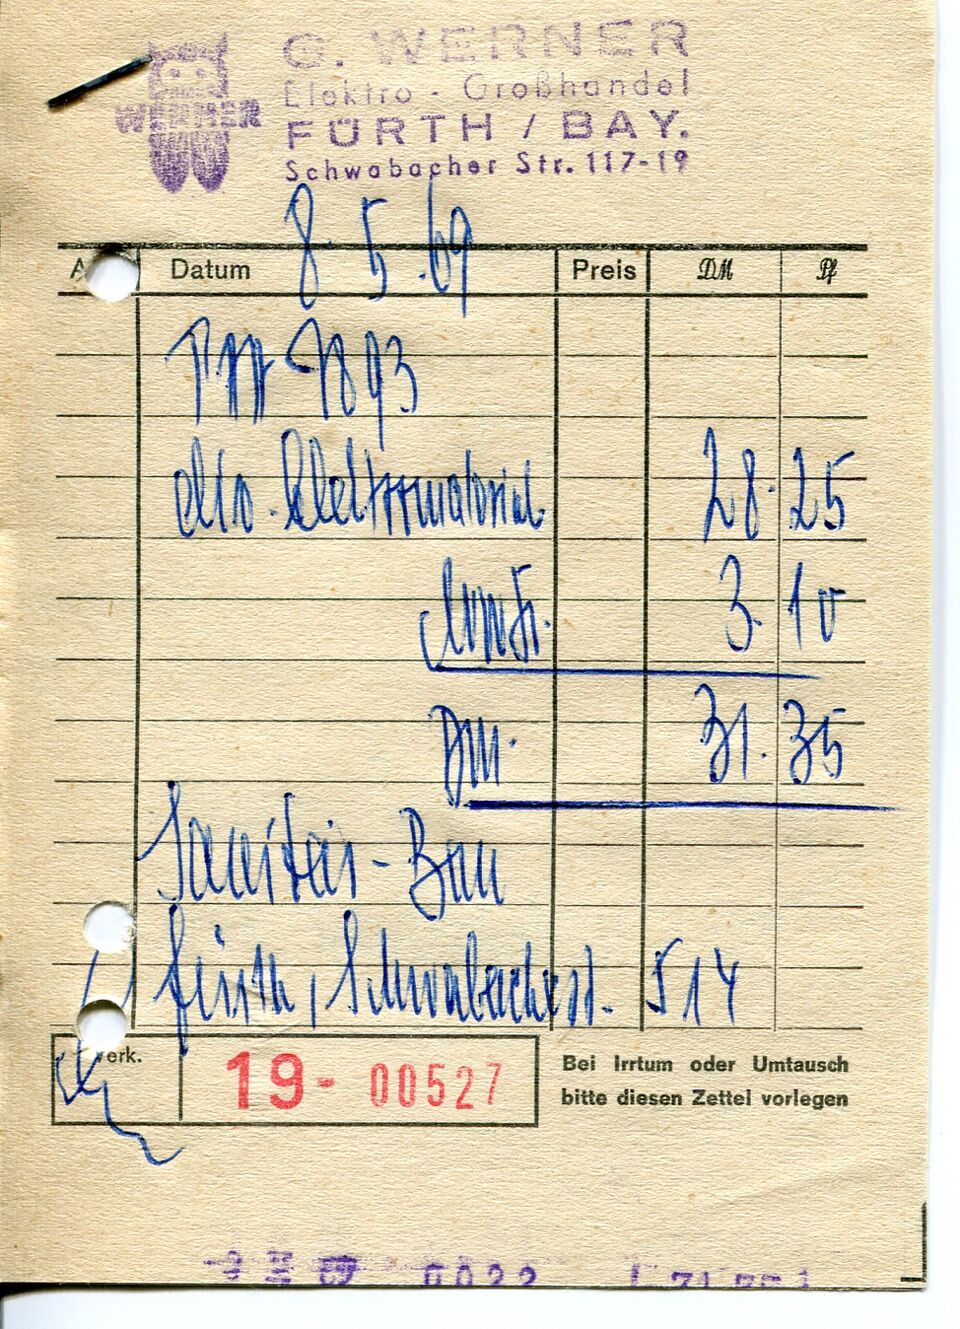 G. WERNER
Elektro - Großhandel
WERNER
FÜRTH / BAY.
Schwabacher Str. 117-19
8. 5. 69
Datum Preis DM Pf
7893
div. Elektromaterial 28. 25
3. 10
DM. 31. 35
Sanitär - Bau
Fürth, Schwabacherst. 514
Verk.
19- 00527
Bei Irrtum oder Umtausch
bitte diesen Zettel vorlegen
0022